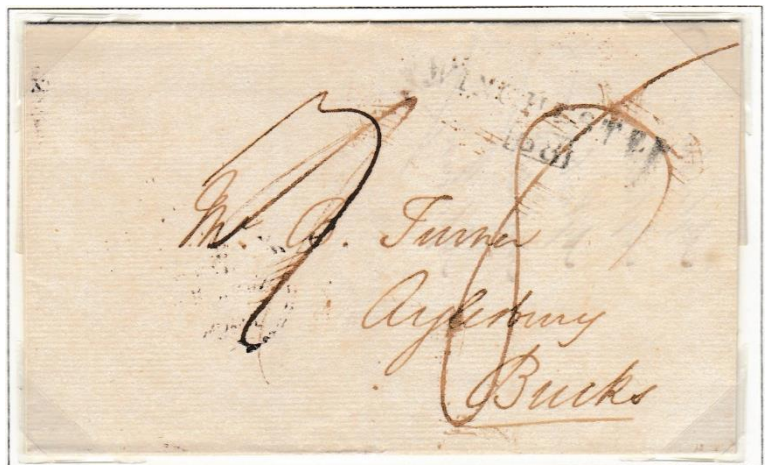 WINCHESTER
Mr. B. Turner
Aylesbury
Bucks